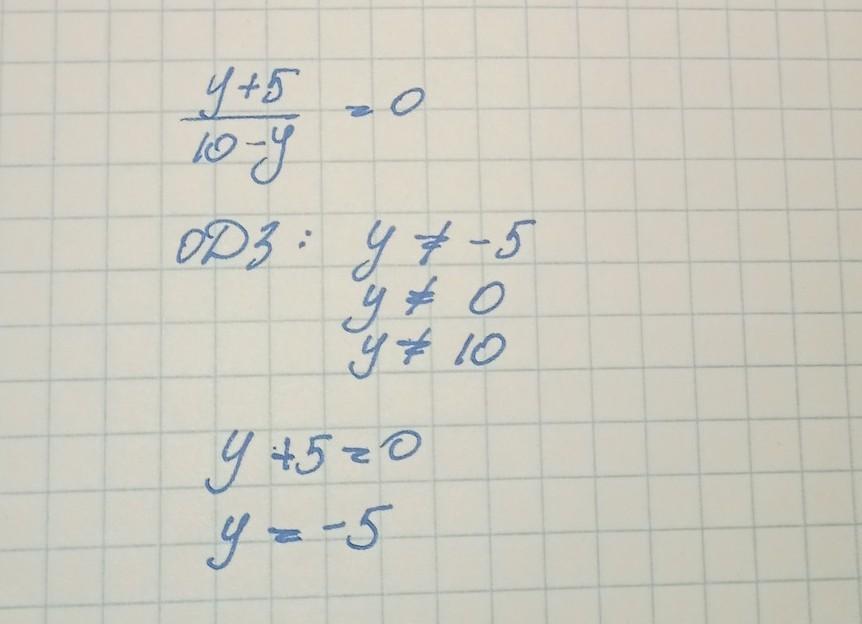 y+5
10-y = 0
ОДЗ: y ≠ -5
y ≠ 0
y ≠ 10
y+5=0
y = -5